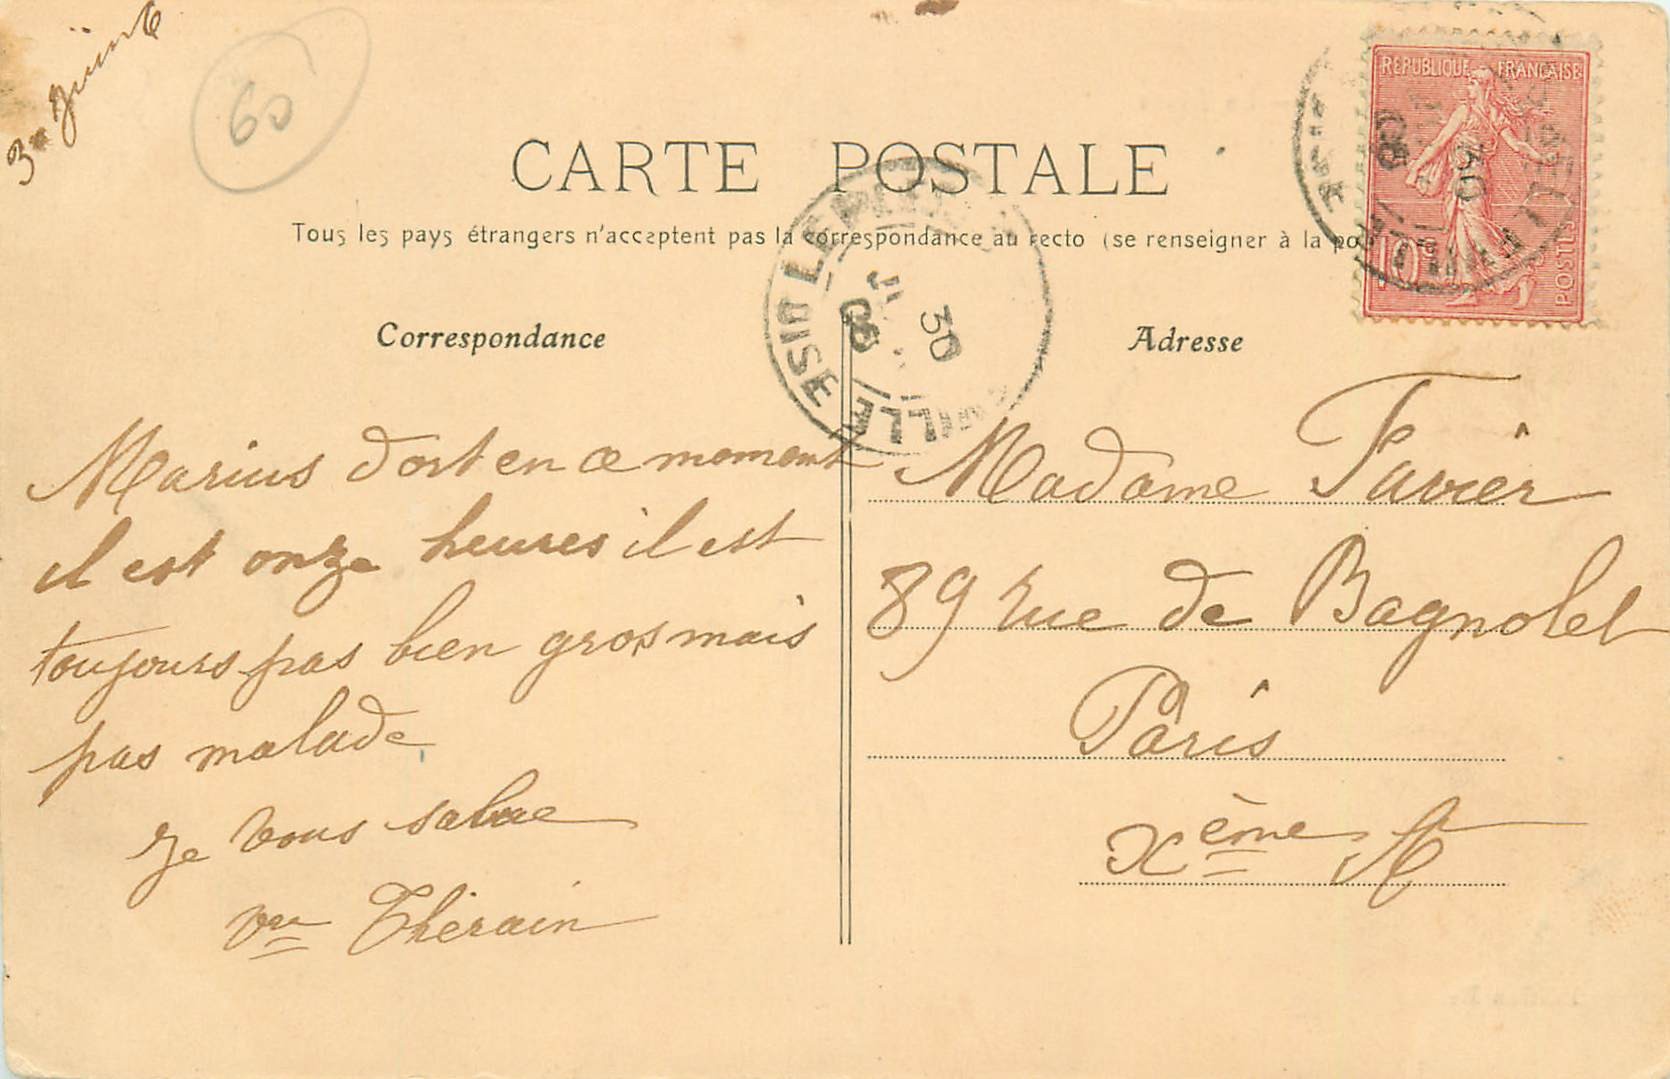 60
CARTE POSTALE
Tous les pays étrangers n'acceptent pas la correspondance au recto (se renseigner à la po
REPUBLIQUE FRANÇAISE
10c
POSTES
30
OISE
Correspondance
Adresse
Marius dort en ce moment
il est onze heures il est
toujours pas bien gros mais
pas malade
Je vous salue
Vve Thérain
Madame Favier
89 rue de Bagnolet
Paris
Xème Art